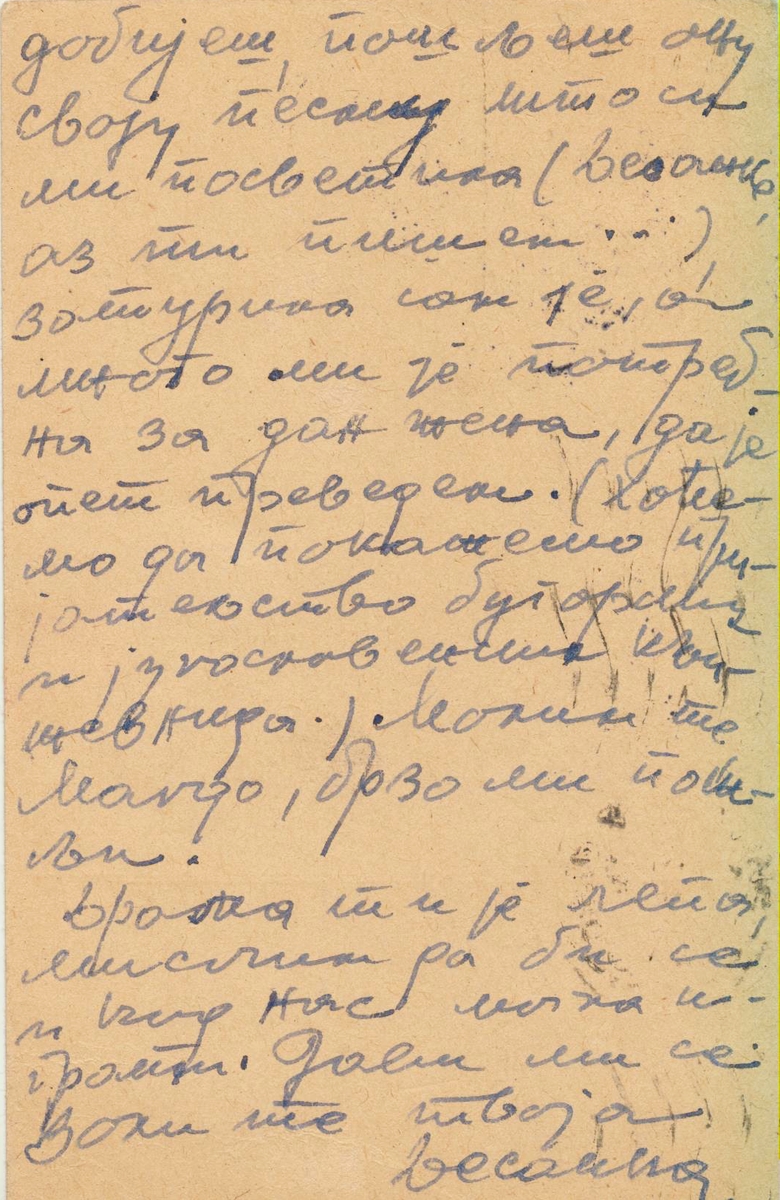 добијеш, пошљеш ону
своју песму што си
ми посветила (Весанка,
аз ти пишем...)
затурила сам је, а
много ми је потреб-
на за дан жена, да је
опет преведем. (Хоће-
мо да покажемо при-
јатељство бугарских
и југословенских књи-
жевника.) Молим те
Магдо, брзо ми пош-
љи.
Драма ти је лепа,
мислим да би се
и код нас могла и-
грати. Јави ми се
Воли те твоја
Весанка